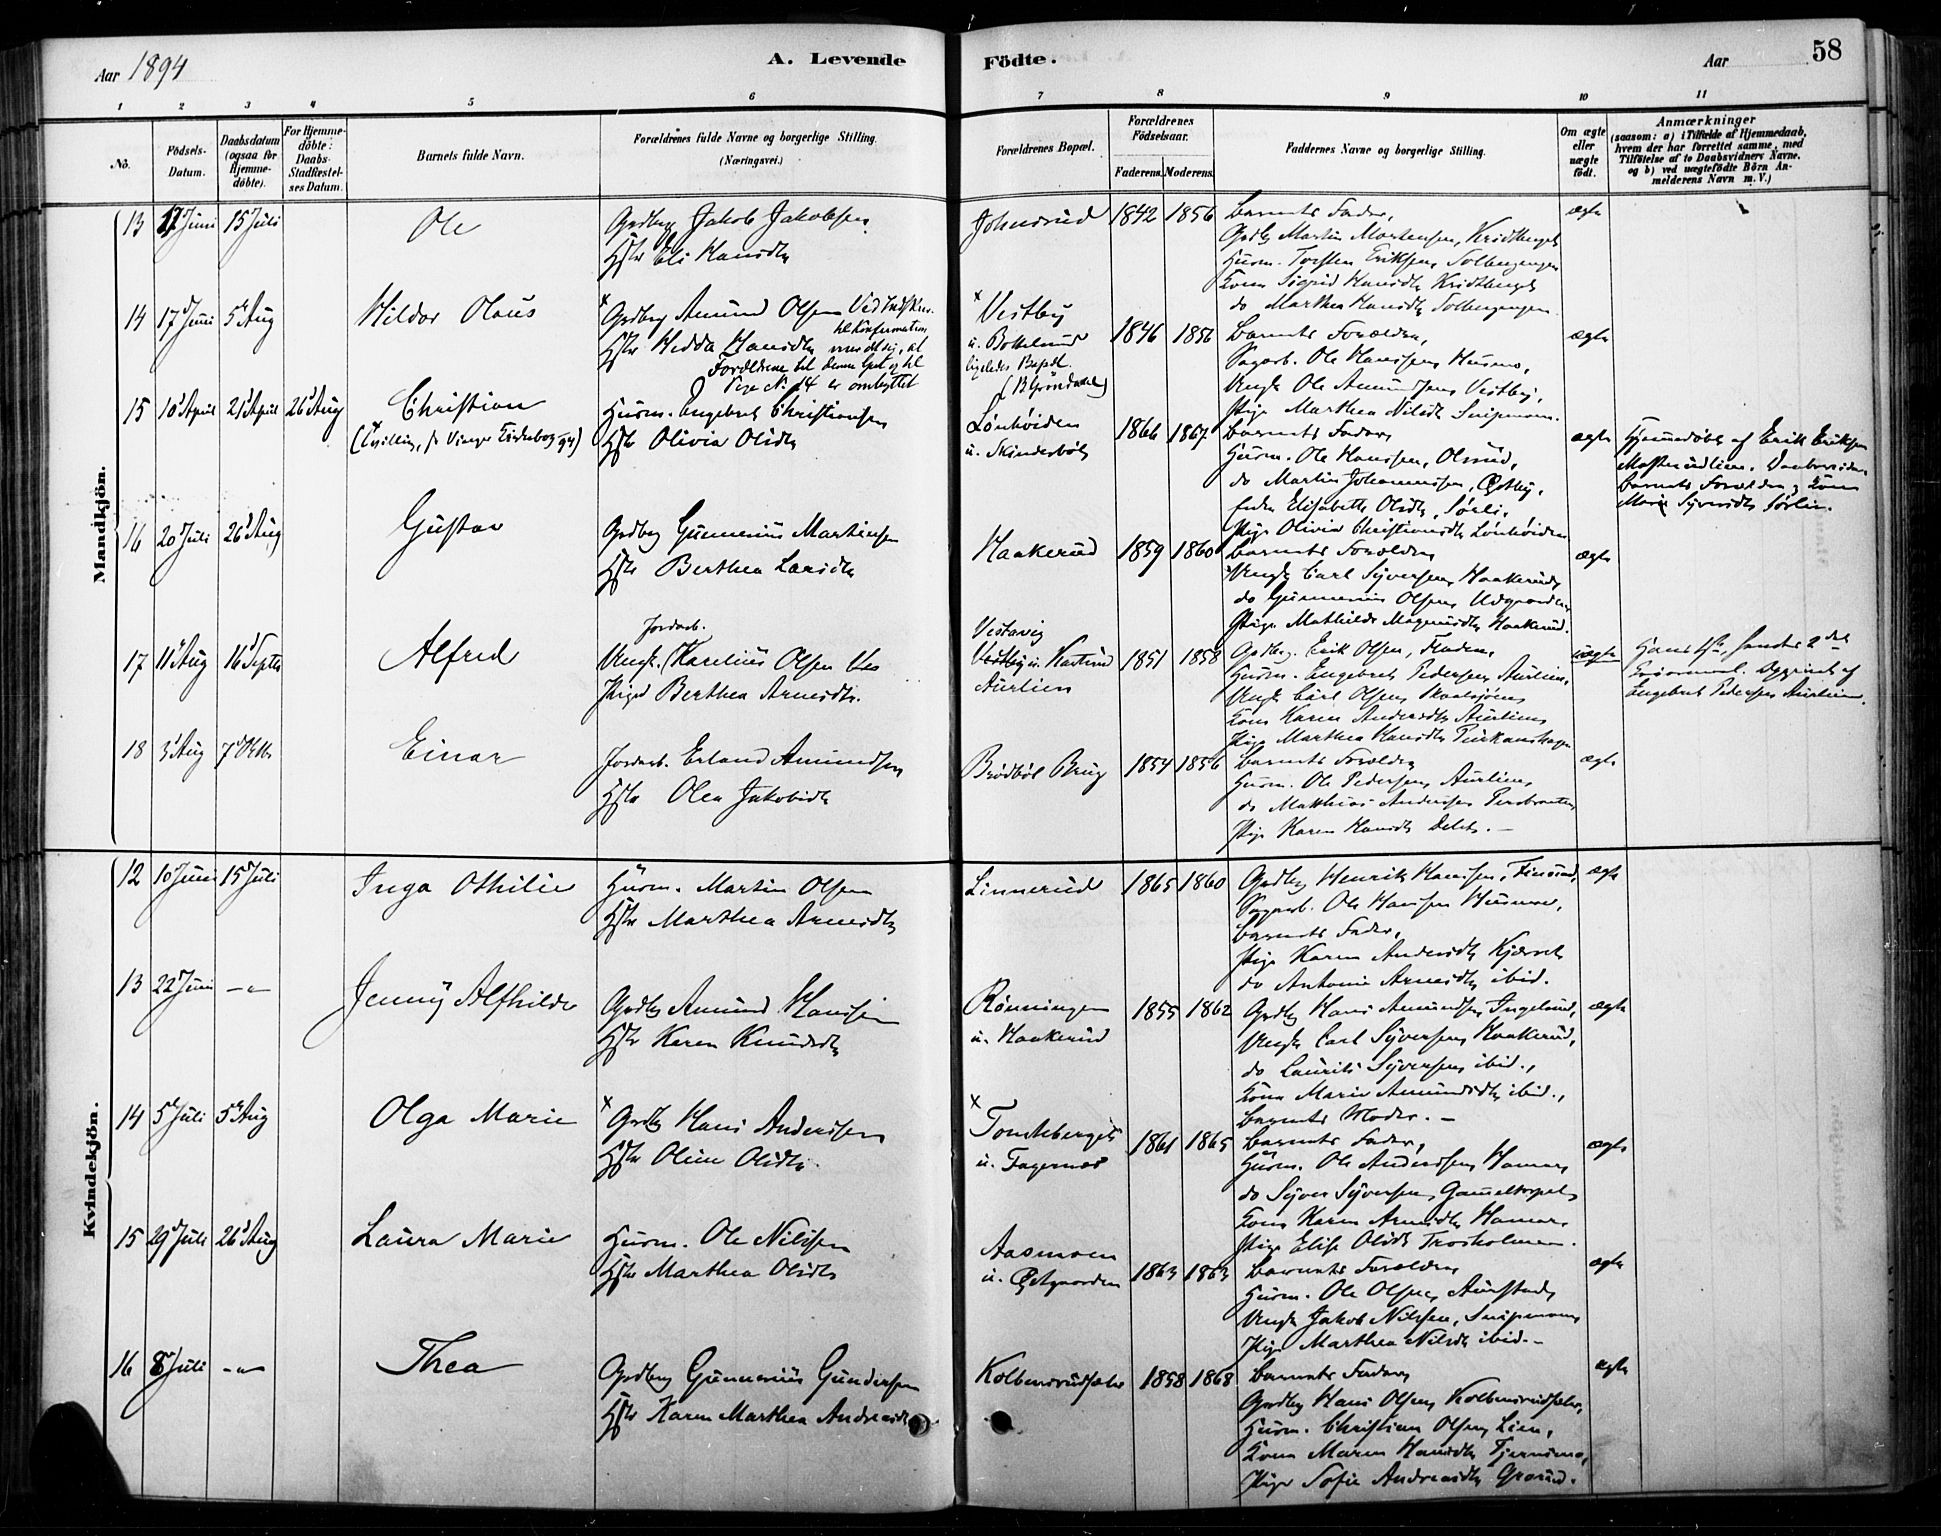 Aar 1894
A. Levende
Födte.
Aar
58
1 2 3 4 5 6 7 8 9 10 11
No.
Födsels-Datum.
Daabsdatum (ogsaa for Hjemme-döbte).
For Hjemme-döbte: Daabs-Stadfæstel-ses Datum.
Barnets fulde Navn.
Forældrenes fulde Navne og borgerlige Stilling. (Næringsvei.)
Forældrenes Bopæl.
Forældrenes Födselsaar.
Faderens. Moderens.
Faddernes Navne og borgerlige Stilling.
Om ægte eller uægte födt.
Anmærkninger
(saasom: a) i Tilfælde af Hjemmedaab, hvem der har forrettet samme, med Tilföielse af to Daabsvidners Navne, og b) ved uægtefödte Börn Anmelderens Navn m. V.)
Mandkjön.
13 17 Juni 15 Juli Ole
Grdbrg Jakob Jakobsen
Hstr Eli Hansdtr
Johnsrud 1842 1856
Barnets Fader,
Grdbr Martin Mortensen, Kristberget
Husm. Torsten Eriksen Solbergengen
Kone Sigrid Hansdtr Kristberget
do Marthea Hansdtr Solbergengen
ægte
14 17 Juni 5 Aug Hildor Olaus
x Grdbrg Amund Olsen
Hstr Hedda Hansdtr
Ved Indskrivn. til Konfirmation meldtes, at Forældrene til denne Gut og til Pige No 14 er ombyttet
x Vestby
u. Bottelsrud
ligeledes Bopæl.
(B Gröndahl)
1846 1856
Barnets Forældre,
Sagarb. Ole Hansen Husmo,
Ungk Ole Amundsen Vestby,
Pige Marthea Nilsdtr Snipmoen.
ægte
15 10 April 21 April 26 Aug Christian
(Tvilling, se Vinger Kirkebog)
Husm. Engebret Christiansen
Hstr Olivia Olsdtr
Lönhöiden
u. Skinderböl
1866 1867
Barnets Fader
Husm. Ole Hanssen, Olsrud,
do Martin Johannesen, Østby,
Enke Elisabeth Olsdtr, Sörli,
Pige Olivia Christiansdtr Lönhöiden
ægte
Hjemmedöbt af Erik Eriksen
Mastrudlien. Daabsvidner
Barnets Forældre og Kone
Marie Syversdtr Sörlien.
16 20 Juli 26 Aug Gustav
Grdbrg Gunnerius Martinsen
Hstr Berthea Larsdtr
Haakerud 1859 1860
Barnets Forældre
Ungk Carl Syversen Haakerud,
do Gunnerius Olsen
Pige Mathilde Magnusdtr Haakerud.
ægte
17 11 Aug 16 Septbr Alfred
Jordarb.
Ungk. Karelius Olsen
Pige Berthea Arnesdtr.
Vestby u. Kastrud
Aurlien
1851 1858
Grdbrg. Erik Olsen,
Husm. Engebret Pedersen Aurlien,
Ungk Carl Olsen
Kone Karen Andersdtr Aurlien
Pige Marthea Hansdtr
uægte
Hans 1ste, hendes 2det
Leiermaal. Opgivet af
Engebret Pedersen Aurlien.
18 3 Aug 7 Oktbr Einar
Jordarb. Erland Amundsen
Hstr Olea Jakobsdtr
Brödböl Brug 1854 1856
Barnets Forældre
Husm. Ole Pedersen Aurlien
do Matthias Andersen
Pige Karen Hansdtr
ægte
Kvindekjön.
12 10 Juni 15 Juli Inga Othilie
Husm. Martin Olsen
Hstr Marthea Arnesdtr
Linnerud 1865 1860
Grdbrg Henrik Hansen, Finsrud,
Sagarb. Ole Hansen Husmo,
Barnets Fader,
Pige Karen Andersdtr
do Antonie Arnesdtr ibid.
ægte
13 22 Juni -"- Jenny Alfhilde
Grdbrg Amund Hansen
Hstr Karen Knudsdtr
Rönningen
u. Haakerud
1855 1862
Grdbrg Hans Amundsen, Ingelsrud,
Ungk Carl Syversen Haakerud,
do Laurits Syversen ibid.,
Kone Marie Amundsdtr ibid.,
Barnets Moder. —
ægte
14 5 Juli 5 Aug Olga Marie
x Grdbr Hans Anderssen
Hstr Oline Olsdtr.
x Tomteberget
u. Fagernæs
1861 1865
Barnets Fader,
Husm. Ole Anderssen Hamar,
do Syver Syversen Gammeltorpet,
Kone Karen Arnesdtr Hamar
Pige Elise Olsdtr Trosholmen.
ægte
15 29 Juli 26 Aug Laura Marie
Husm. Ole Nilssen
Hstr Marthea Olsdtr
Aasmoen
u. Østgaarden
1863 1863
Barnets Forældre
Husm. Ole Olsen Aurstad,
Ungk Jakob Nilsen, Snipmoen,
Pige Marthea Nilsdtr ibid. —
ægte
16 8 Juli -"- Thea
Grdbrg Gunnerius Gundersen
Hstr Karen Marthea Andreasdtr
Kolbensrudsæter 1858 1868
Barnets Fader
Grdbrg Hans Olsen Kolbensrudsæter,
Husm. Christian Olsen Lien,
Kone Maren Hansdtr
Pige Sofie Andreasdtr Grasrud.
ægte